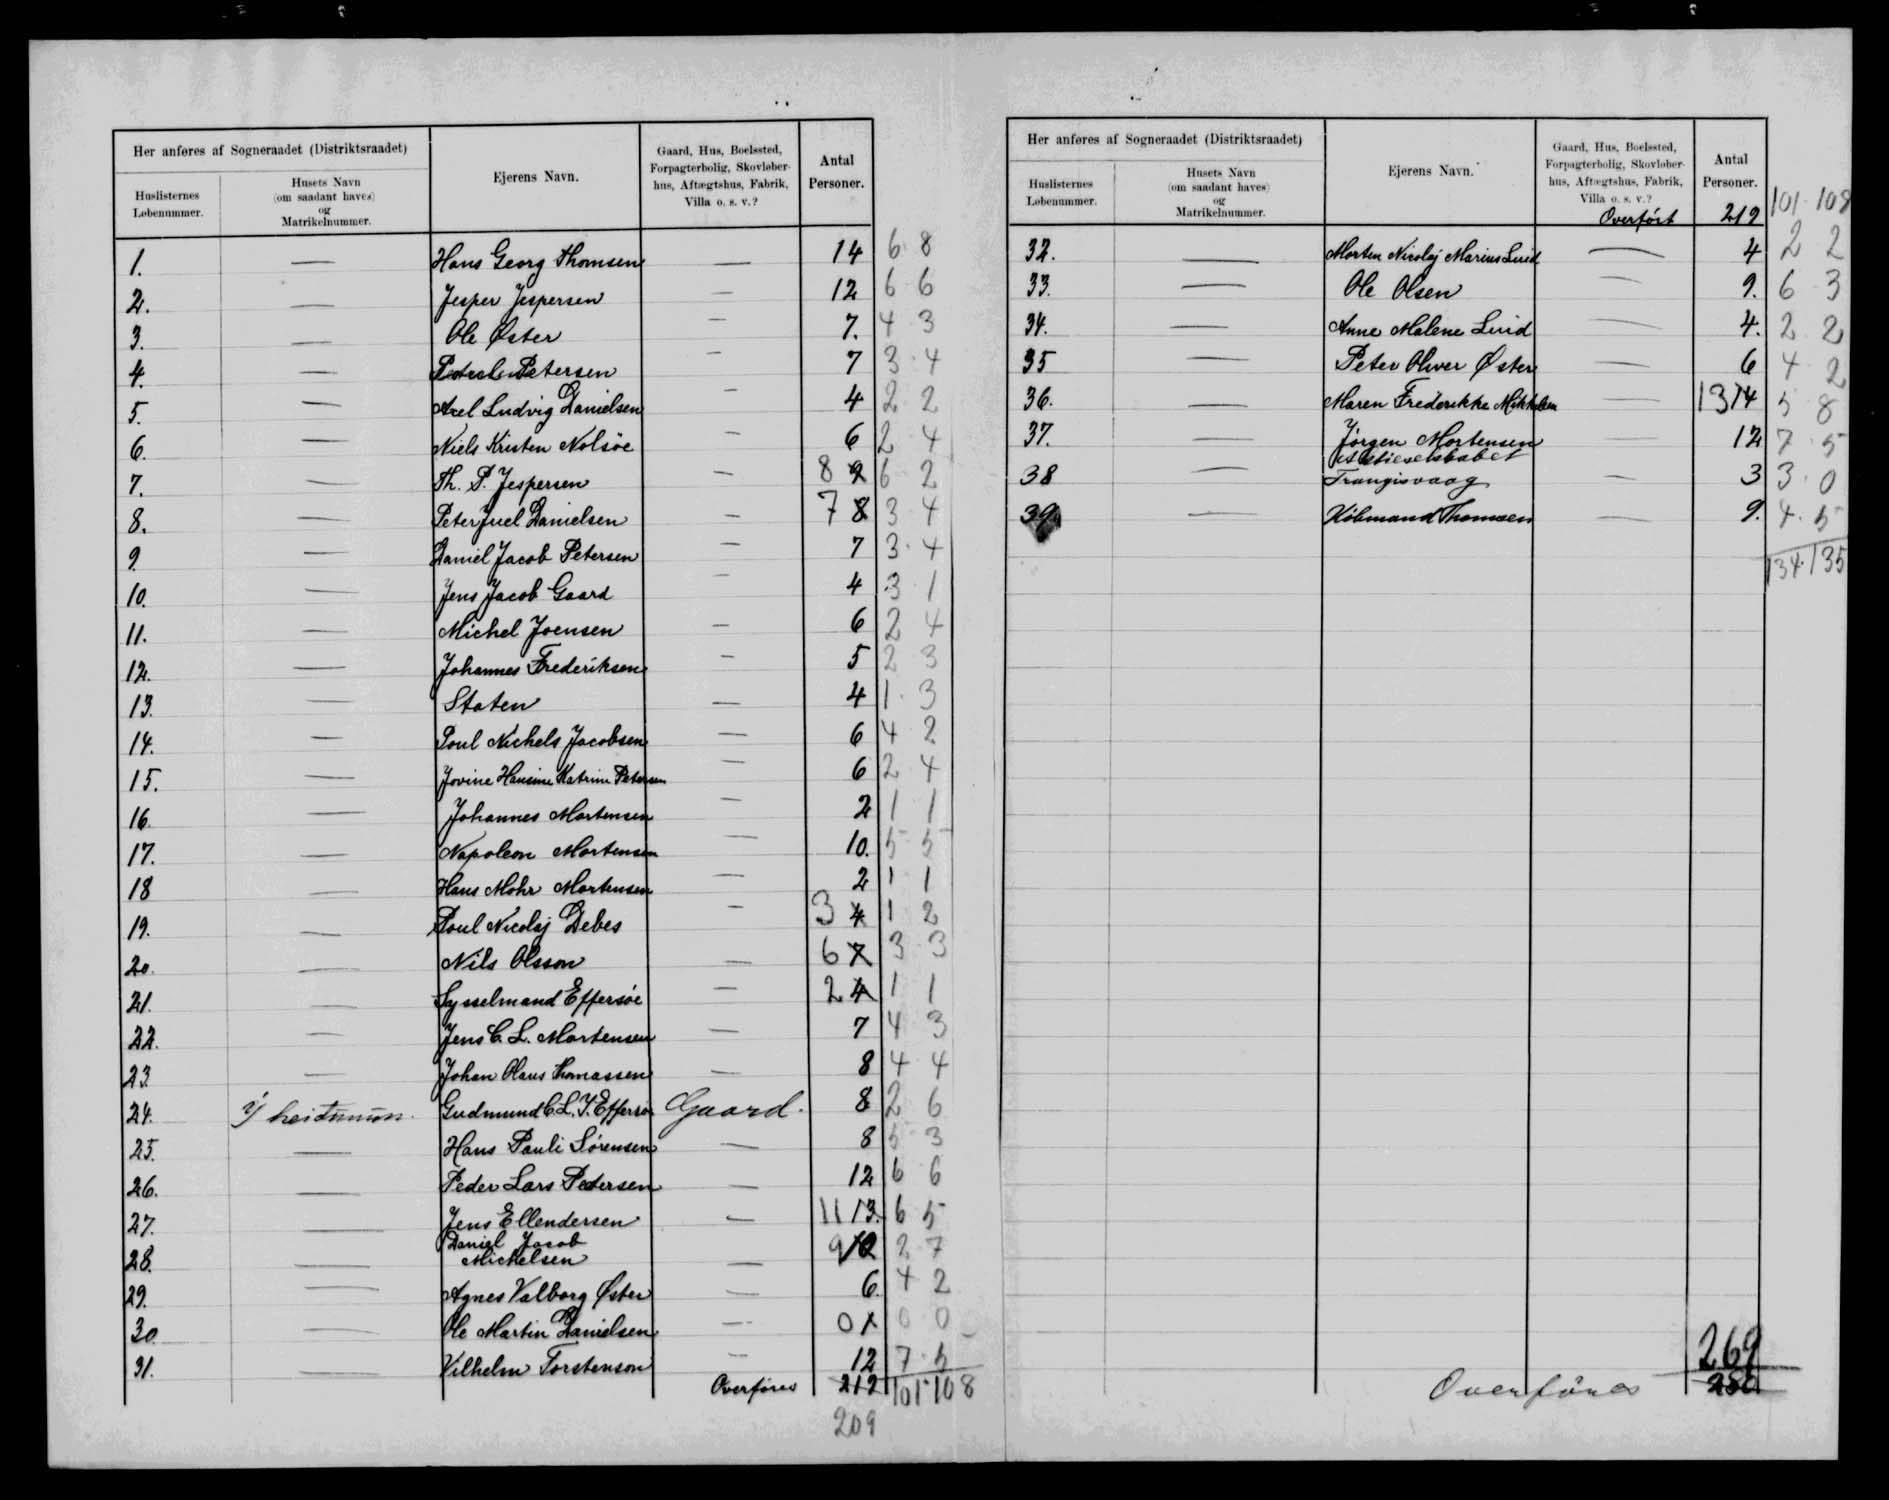 Her anføres af Sogneraadet (Distriktsraadet)
Huslisternes Løbenummer.
Husets Navn (om saadant haves) og Matrikelnummer.
Ejerens Navn.
Gaard, Hus, Boelssted, Forpagterbolig, Skovløberhus, Aftægtshus, Fabrik, Villa o. s. v.?
Antal Personer.
1. — Hans Georg Thomsen — 14 6 8
2. — Jesper Jespersen — 12 6 6
3. — Ole Øster — 7. 4 3
4. — Petersen — 7 3 4
5. — Axel Ludvig Danielsen — 4 2 2
6. — Niels Kristen Nolsöe — 6 2 4
7. — Th. P. Jespersen — 8 9 6 2
8. — Peter Juel Danielsen — 7 8 3 4
9. — Daniel Jacob Petersen — 7 3 4
10. — Jens Jacob Gaard — 4 3 1
11. — Michel Joensen — 6 2 4
12. — Johannes Frederiksen — 5 2 3
13. — Staten — 4 1 3
14. — Poul Nichels Jacobsen — 6 4 2
15. — Jovine Hansine Katrine Petersen — 6 2 4
16. — Johannes Mortensen — 2 1 1
17. — Napoleon Mortensen — 10. 5 5
18 — Hans Mohr Mortensen — 2 1 1
19. — Poul Nicolaj Debes — 3 4 1 2
20. — Nils Olsson — 6 7 3 3
21. — Sysselmand Effersöe — 2 4 1 1
22. — Jens C. L. Mortensen — 7 4 3
23. — Johan Olaus Thomassen — 8 4 4
24. Gudmund C. L. J. Effersöe Gaard. 8 2 6
25. — Hans Pauli Sörensen — 8 5 3
26. — Peder Lars Pedersen — 12 6 6
27. — Jens Ellendersen — 11 13. 6 5
28. — Daniel Jacob
Michelsen — 9 10 2 7
29. — Agnes Valborg Øster — 6. 4 2
30. — Ole Martin Danielsen — 0 1 0 0
31. — Vilhelm Torstenson — 12 7 5
Overföres 212 101 108
209
Her anføres af Sogneraadet (Distriktsraadet)
Huslisternes Løbenummer.
Husets Navn (om saadant haves) og Matrikelnummer.
Ejerens Navn.
Gaard, Hus, Boelssted, Forpagterbolig, Skovløberhus, Aftægtshus, Fabrik, Villa o. s. v.?
Antal Personer.
Overfört 219 101 108
32. — Morten Nicolaj Marius Lind — 4 2 2
33. — Ole Olsen — 9. 6 3
34. — Anne Malene Lind — 4. 2 2
35 — Peter Oliver Øster — 6 4 2
36. — Maren Frederikke Mikkelsen — 13 14 5 8
37. — Jörgen Mortensen — 12 7 5
Aktieselskabet
38 — Trangisvaag — 3 3 0
39. — Köbmand Thomsen — 9. 4 5
134 135
269
Overföres 280